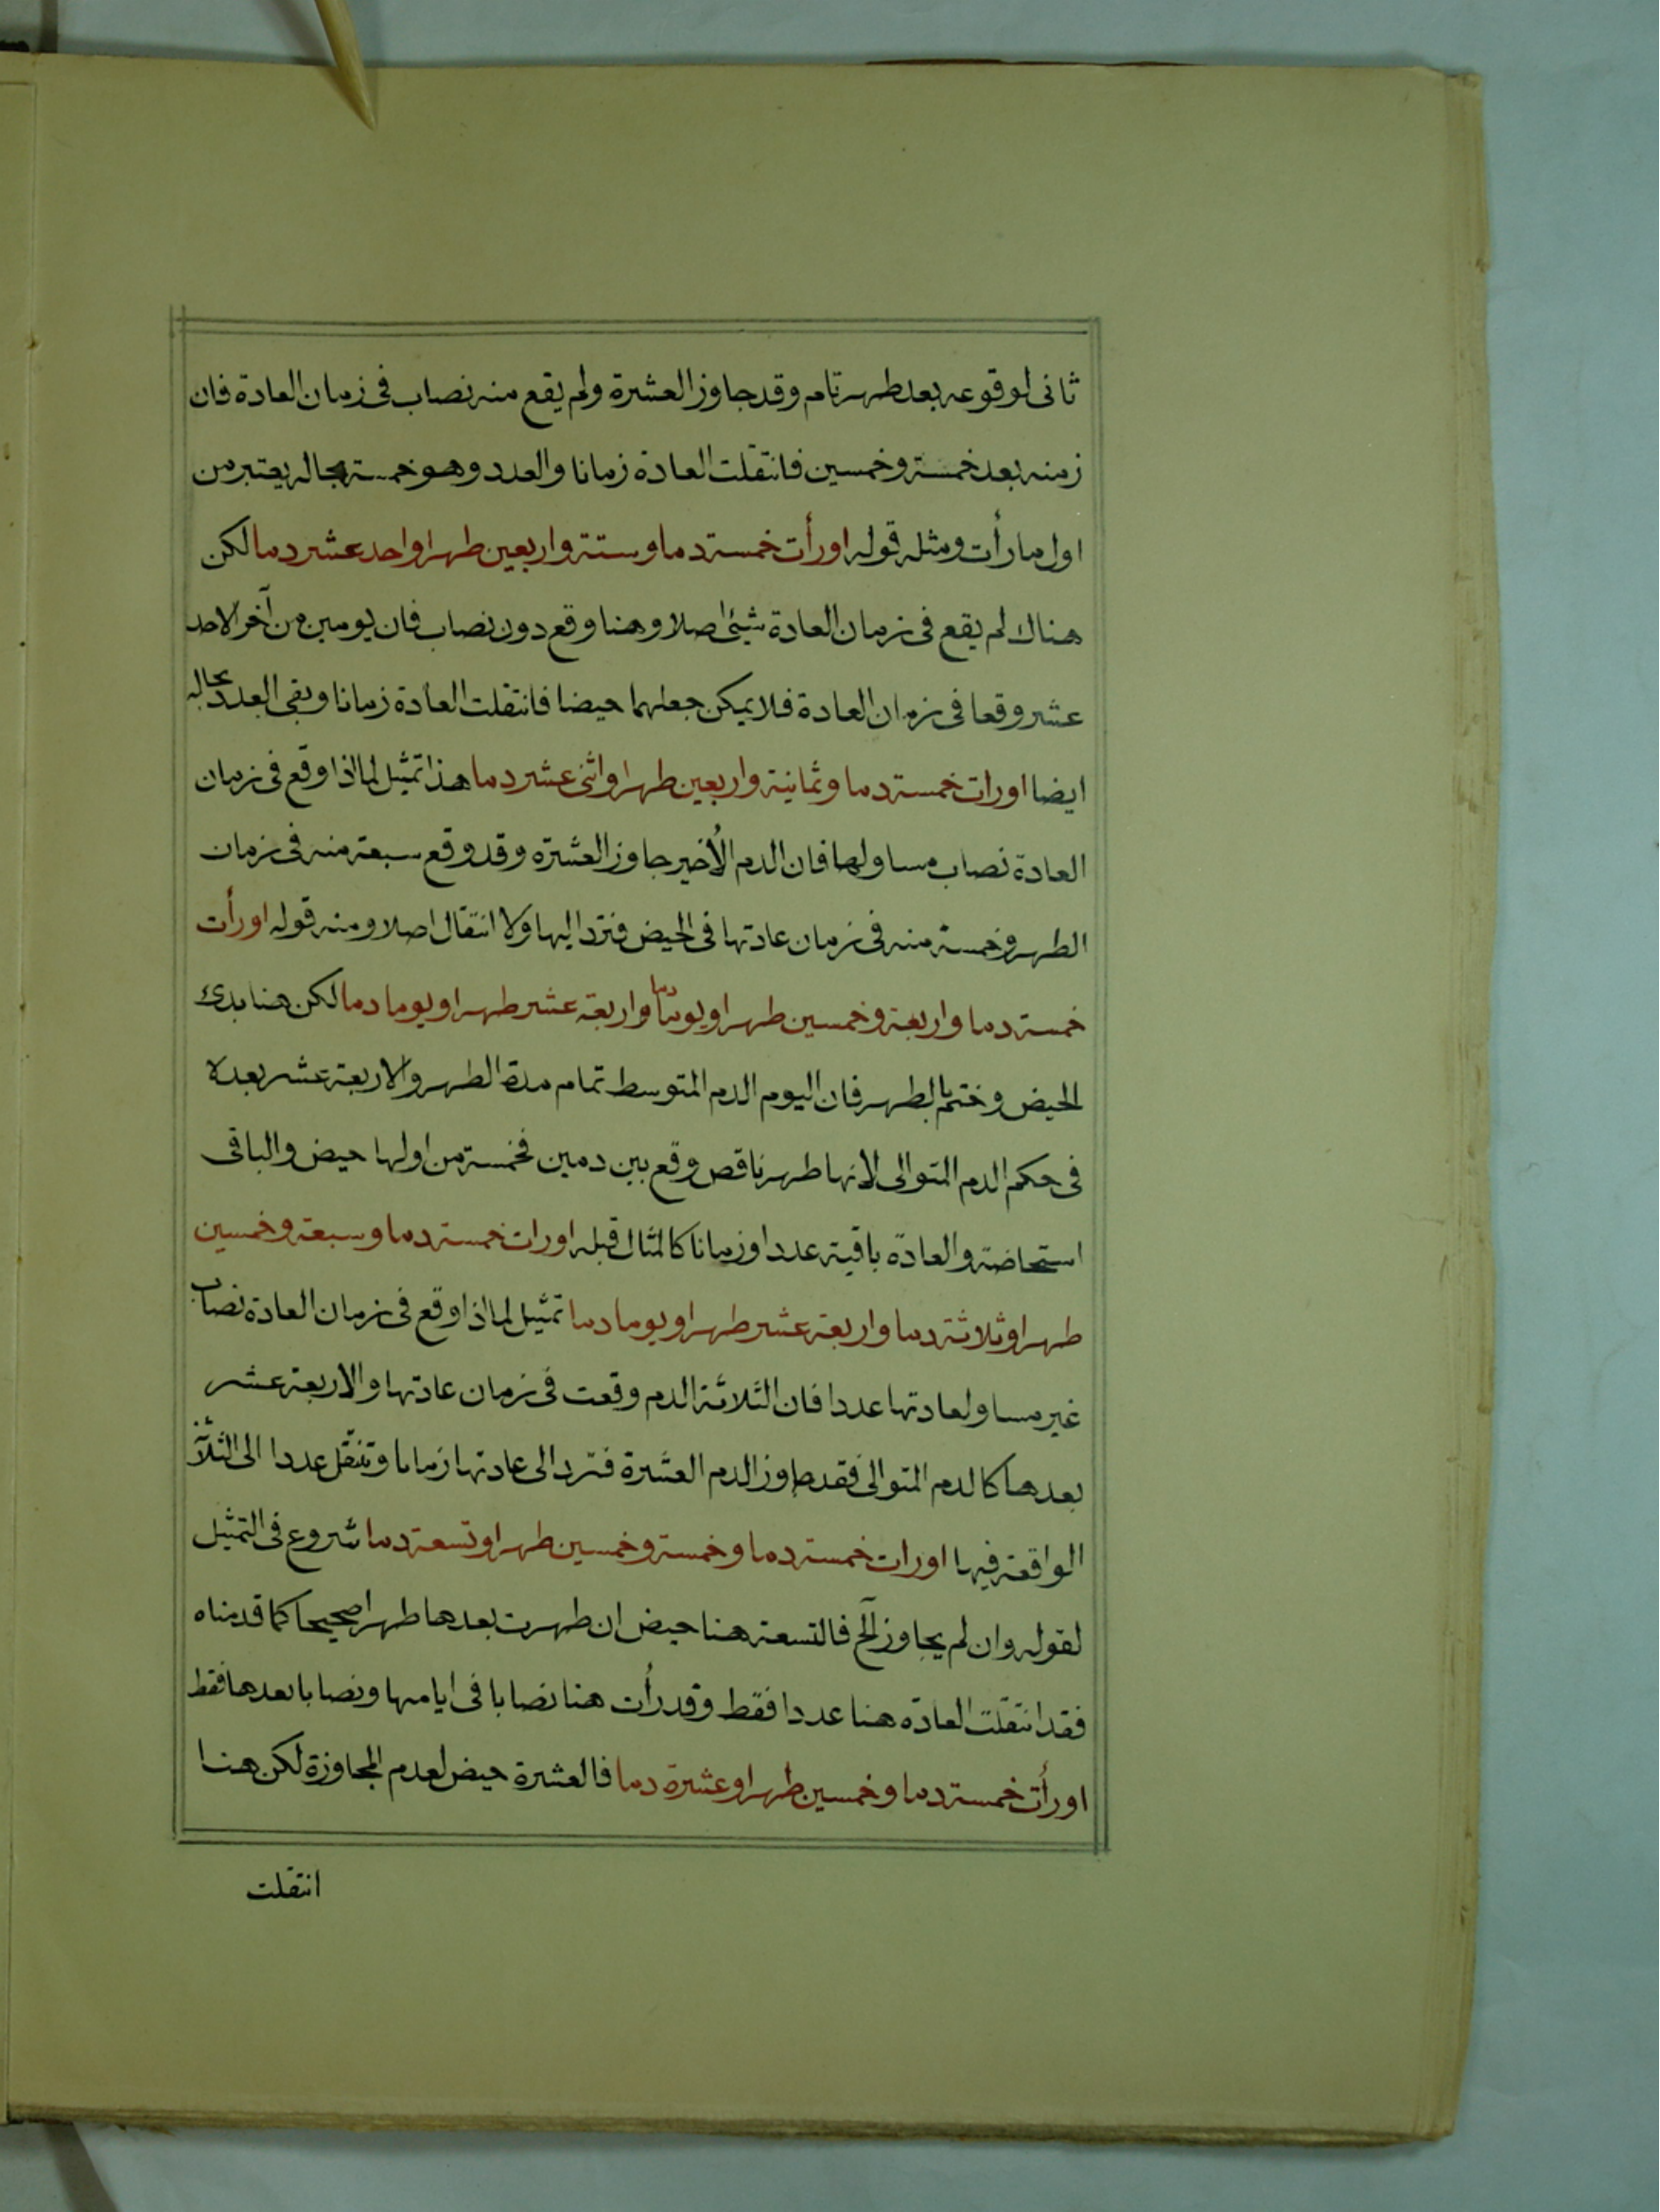 ثانى لوقوعه بعد طهر تام وقد جاوز العشرة ولم يقع منه نصاب فى زمان العادة فان
زمنه بعد خمسة وخمسين فانتقلت العادة زمانا والعدد وهو خمسة بحاله يعتبر من
اول ما رأت ومثله قوله اورأت خمسة دما وستة واربعين طهرا واحد عشر دما لكن
هناك لم يقع فى زمان العادة شيئ اصلا وهنا وقع دون نصاب فان يومين من آخر الاحد
عشر وقعا فى زمان العادة فلا يمكن جعلهما حيضا فانتقلت العادة زمانا وبقى العدد بحاله
ايضا اورات خمسة دما وثمانية واربعين طهرا واثنى عشر دما هذا تمثيل لما اذا وقع فى زمان
العادة نصاب مساو لها فان الدم الأخير جاوز العشرة وقد وقع سبعة منه فى زمان
الطهر وخمسة منه فى زمان عادتها فى الحيض فترد اليها ولا انتقال اصلا ومنه قوله اورأت
خمسة دما واربعة وخمسين طهرا ويوما دما واربعة عشر طهرا ويوما دما لكن هنا بدئ
الحيض وختم بالطهر فان اليوم الدم المتوسط تمام مدة الطهر والاربعة عشر بعده
فى حكم الدم المتوالى لانها طهر ناقص وقع بين دمين فخمسة من اولها حيض والباقى
استحاضة والعادة باقية عددا وزمانا كالمثال قبله اورات خمسة دما وسبعة وخمسين
طهرا وثلاثة دما واربعة عشر طهرا ويوما دما تمثيل لما اذا وقع فى زمان العادة نصاب
غير مساو لعادتها عددا فان الثلاثة الدم وقعت فى زمان عادتها والاربعة عشر
بعدها كالدم المتوالى فقد جاوز الدم العشرة فترد الى عادتها زمانا وتنتقل عددا الى الثلاثة
الواقعة فيها اورات خمسة دما وخمسة وخمسين طهرا وتسعة دما شروع فى التمثيل
لقوله وان لم يجاوز الخ فالتسعة هنا حيض ان طهرت بعدها طهرا صحيحا كما قدمناه
فقد انتقلت العادة هنا عددا فقط وقد رأت هنا نصابا فى ايامها ونصابا بعدها فقط
اورأت خمسة دما وخمسين طهرا وعشرة دما فالعشرة حيض لعدم المجاوزة لكن هنا
انتقلت